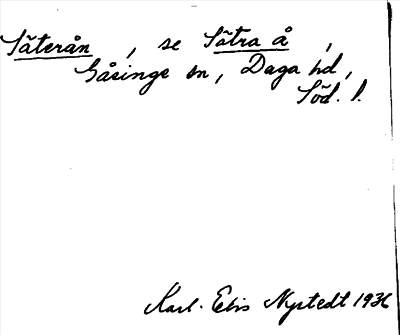 Säterån, se Sätra å,
Gåsinge sn, Daga hd,
Söd. l.
Karl-Elis Nystedt 1936